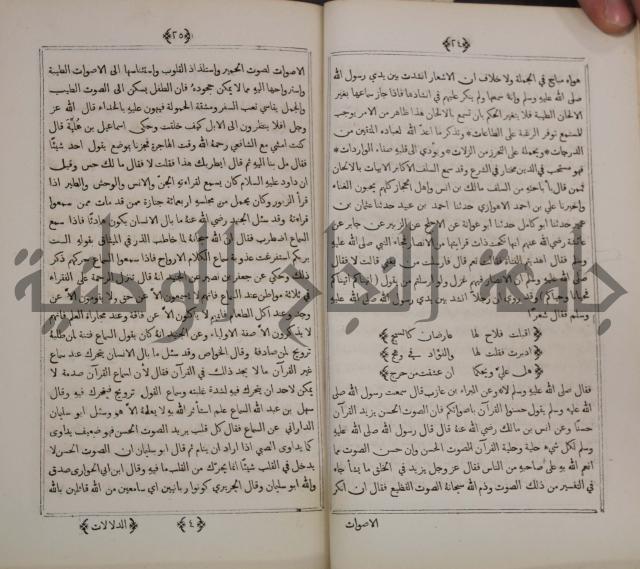 ﴿٢٤﴾
هواء سابح في الجملة ولا خلاف ان الاشعار انشدت بين يدي رسول الله
صلى الله عليه وسلم وانه سمعها ولم ينكر عليهم في انشادها فاذا جاز سماعها بغير
الالحان الطيبة فلا يتغير الحكم بان تسمع بالالحان هذا ظاهر من الامر ثم ما يوجب
للمستمع توفر الرغبة على الطاعات وتذكر ما اعد الله لعباده المتقين من
الدرجات ويحمله على التحرز من الزلات ويؤدي الى قلبه صفاء الواردات
فهو مستحب في الدين مختار في الشرع وقد سمع السلف الاكابر الابيات بالالحان
فمن قال باباحته من السلف مالك بن انس واهل الحجاز كلهم يبيحون الغناء
واخبرنا علي بن احمد الاهوازي حدثنا احمد بن عبيد حدثنا عثمان بن
عمر حدثنا ابو كامل حدثنا ابو عوانة عن الاجلح عن ابي الزبير عن جابر عن
عائشة رضي الله عنهم انها انكحت ذات قرابتها من الانصار فجاء النبي صلى الله عليه
وسلم فقال اهديتم الفتاة فقالت نعم قال فارسلت من يغني قالت لا فقال
صلى الله عليه وسلم ان الانصار فيهم غزل ولو ارسلتم من يقول (اتيناكم اتيناكم
فحيانا وحياكم) وقد روي ان رجلا انشد بين يدي رسول الله صلى الله عليه
وسلم فقال شعرا
﴿ اقبلت فلاح لها عارضان كالسبج ﴾
﴿ ادبرت فقلت لها والفؤاد في وهج ﴾
﴿ هل علي ويحكما ان عشقت من حرج ﴾
فقال صلى الله عليه وسلم لا وعن البراء بن عازب قال سمعت رسول الله صلى
الله عليه وسلم يقول حسنوا القرآن باصواتكم فان الصوت الحسن يزيد القرآن
حسنا وعن انس بن مالك رضي الله عنه قال قال رسول الله صلى الله عليه
وسلم لكل شيء حلية وحلية القرآن الصوت الحسن وان حسن الصوت مما
انعم الله به على صاحبه من الناس فقال عز وجل يزيد في الخلق ما يشاء جاء
في التفسير من ذلك الصوت وذم الله سبحانه الصوت الفظيع فقال ان انكر
الاصوات
﴿٢٥﴾
الاصوات لصوت الحمير واستلذاذ القلوب واستئناسها الى الاصوات الطيبة
واسترواحها اليه مما لا يمكن جحوده فان الطفل يسكن الى الصوت الطيب
والجمل يقاسي تعب السير ومشقة الحمولة فيهون عليه بالحداء قال الله عز
وجل افلا ينظرون الى الابل كيف خلقت وحكى اسماعيل بن علية قال
كنت امشي مع الشافعي رحمة الله وقت الهاجرة فجزنا بموضع يقول احد شيئا
فقال مل بنا اليه ثم قال ايطربك هذا فقلت لا فقال ما لك حس وقيل
ان داود عليه السلام كان يسمع لقراءته الجن والانس والوحش والطير اذا
قرأ الزبور وكان يحمل من مجلسه اربعمائة جنازة ممن قد مات ممن سمعوا
قراءته وقد سئل الجنيد رضي الله عنه ما بال الانسان يكون هادئا فاذا سمع
السماع اضطرب فقال ان الله سبحانه لما خاطب الذر في الميثاق بقوله الست
بربكم استفرغت عذوبة سماع الكلام الارواح فاذا سمعوا السماع حركهم ذكر
ذلك وحكي عن جعفر بن نصير عن الجنيد انه قال تنزل الرحمة على الفقراء
في ثلاثة مواطن عند السماع فانهم لا يسمعون الا عن حق ولا يقومون الا عن
وجد وعند اكل الطعام فانهم لا يأكلون الا عن فاقة وعند مجاراة العلم فانهم
لا يذكرون الا صفة الاولياء وعن الجنيد انه كان يقول السماع فتنة لمن طلبه
ترويح لمن صادفه وقال الخواص وقد سئل ما بال الانسان يتحرك عند سماع
غير القرآن ما لا يجد ذلك في القرآن فقال لان سماع القرآن صدمة لا
يمكن لاحد ان يتحرك فيه لشدة غلبته وسماع القول ترويح فيتحرك فيه وقال
سهل بن عبد الله السماع علم استأثر الله به لا يعلمه الا هو وسئل ابو سليمان
الداراني عن السماع فقال كل قلب يريد الصوت الحسن فهو ضعيف يداوى
كما يداوى الصبي اذا اراد ان ينام ثم قال ابو سليمان ان الصوت الحسن لا
يدخل في القلب شيئا انما يحرك من القلب ما فيه وقال ابن ابي الحوارى صدق
والله ابو سليمان وقال الجريري كونوا ربانيين اي سامعين من الله قائلين بالله
﴿٤﴾ ﴿الدلالات﴾
جامعة النجاح الوطنية